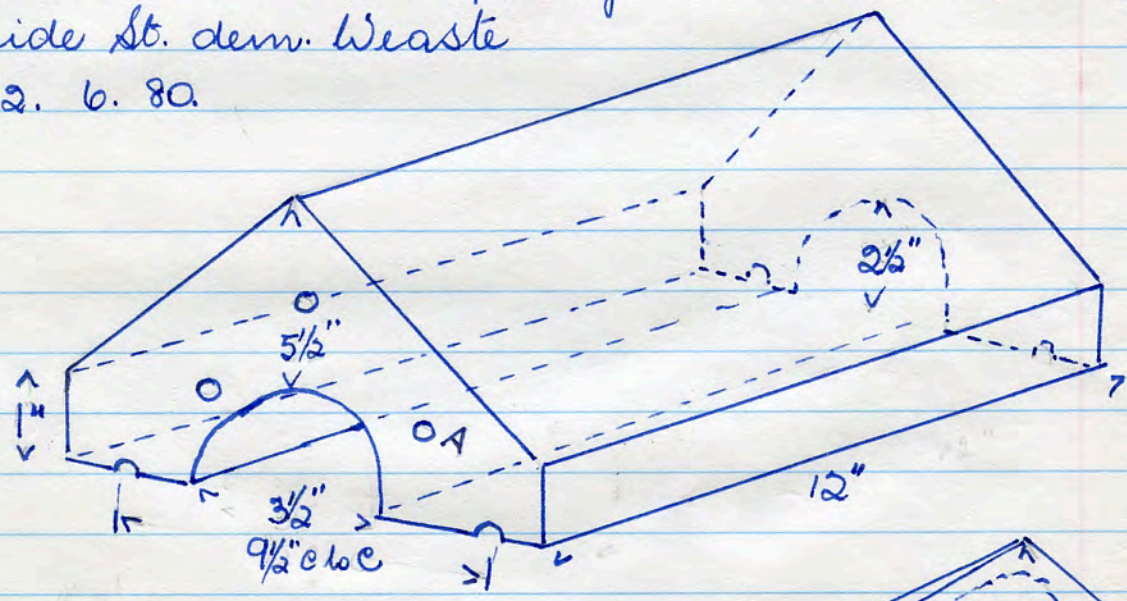 ide St. dem. Weaste
2. 6. 80.
2½"
5½"
1"
A
3½"
12"
9½" C to C